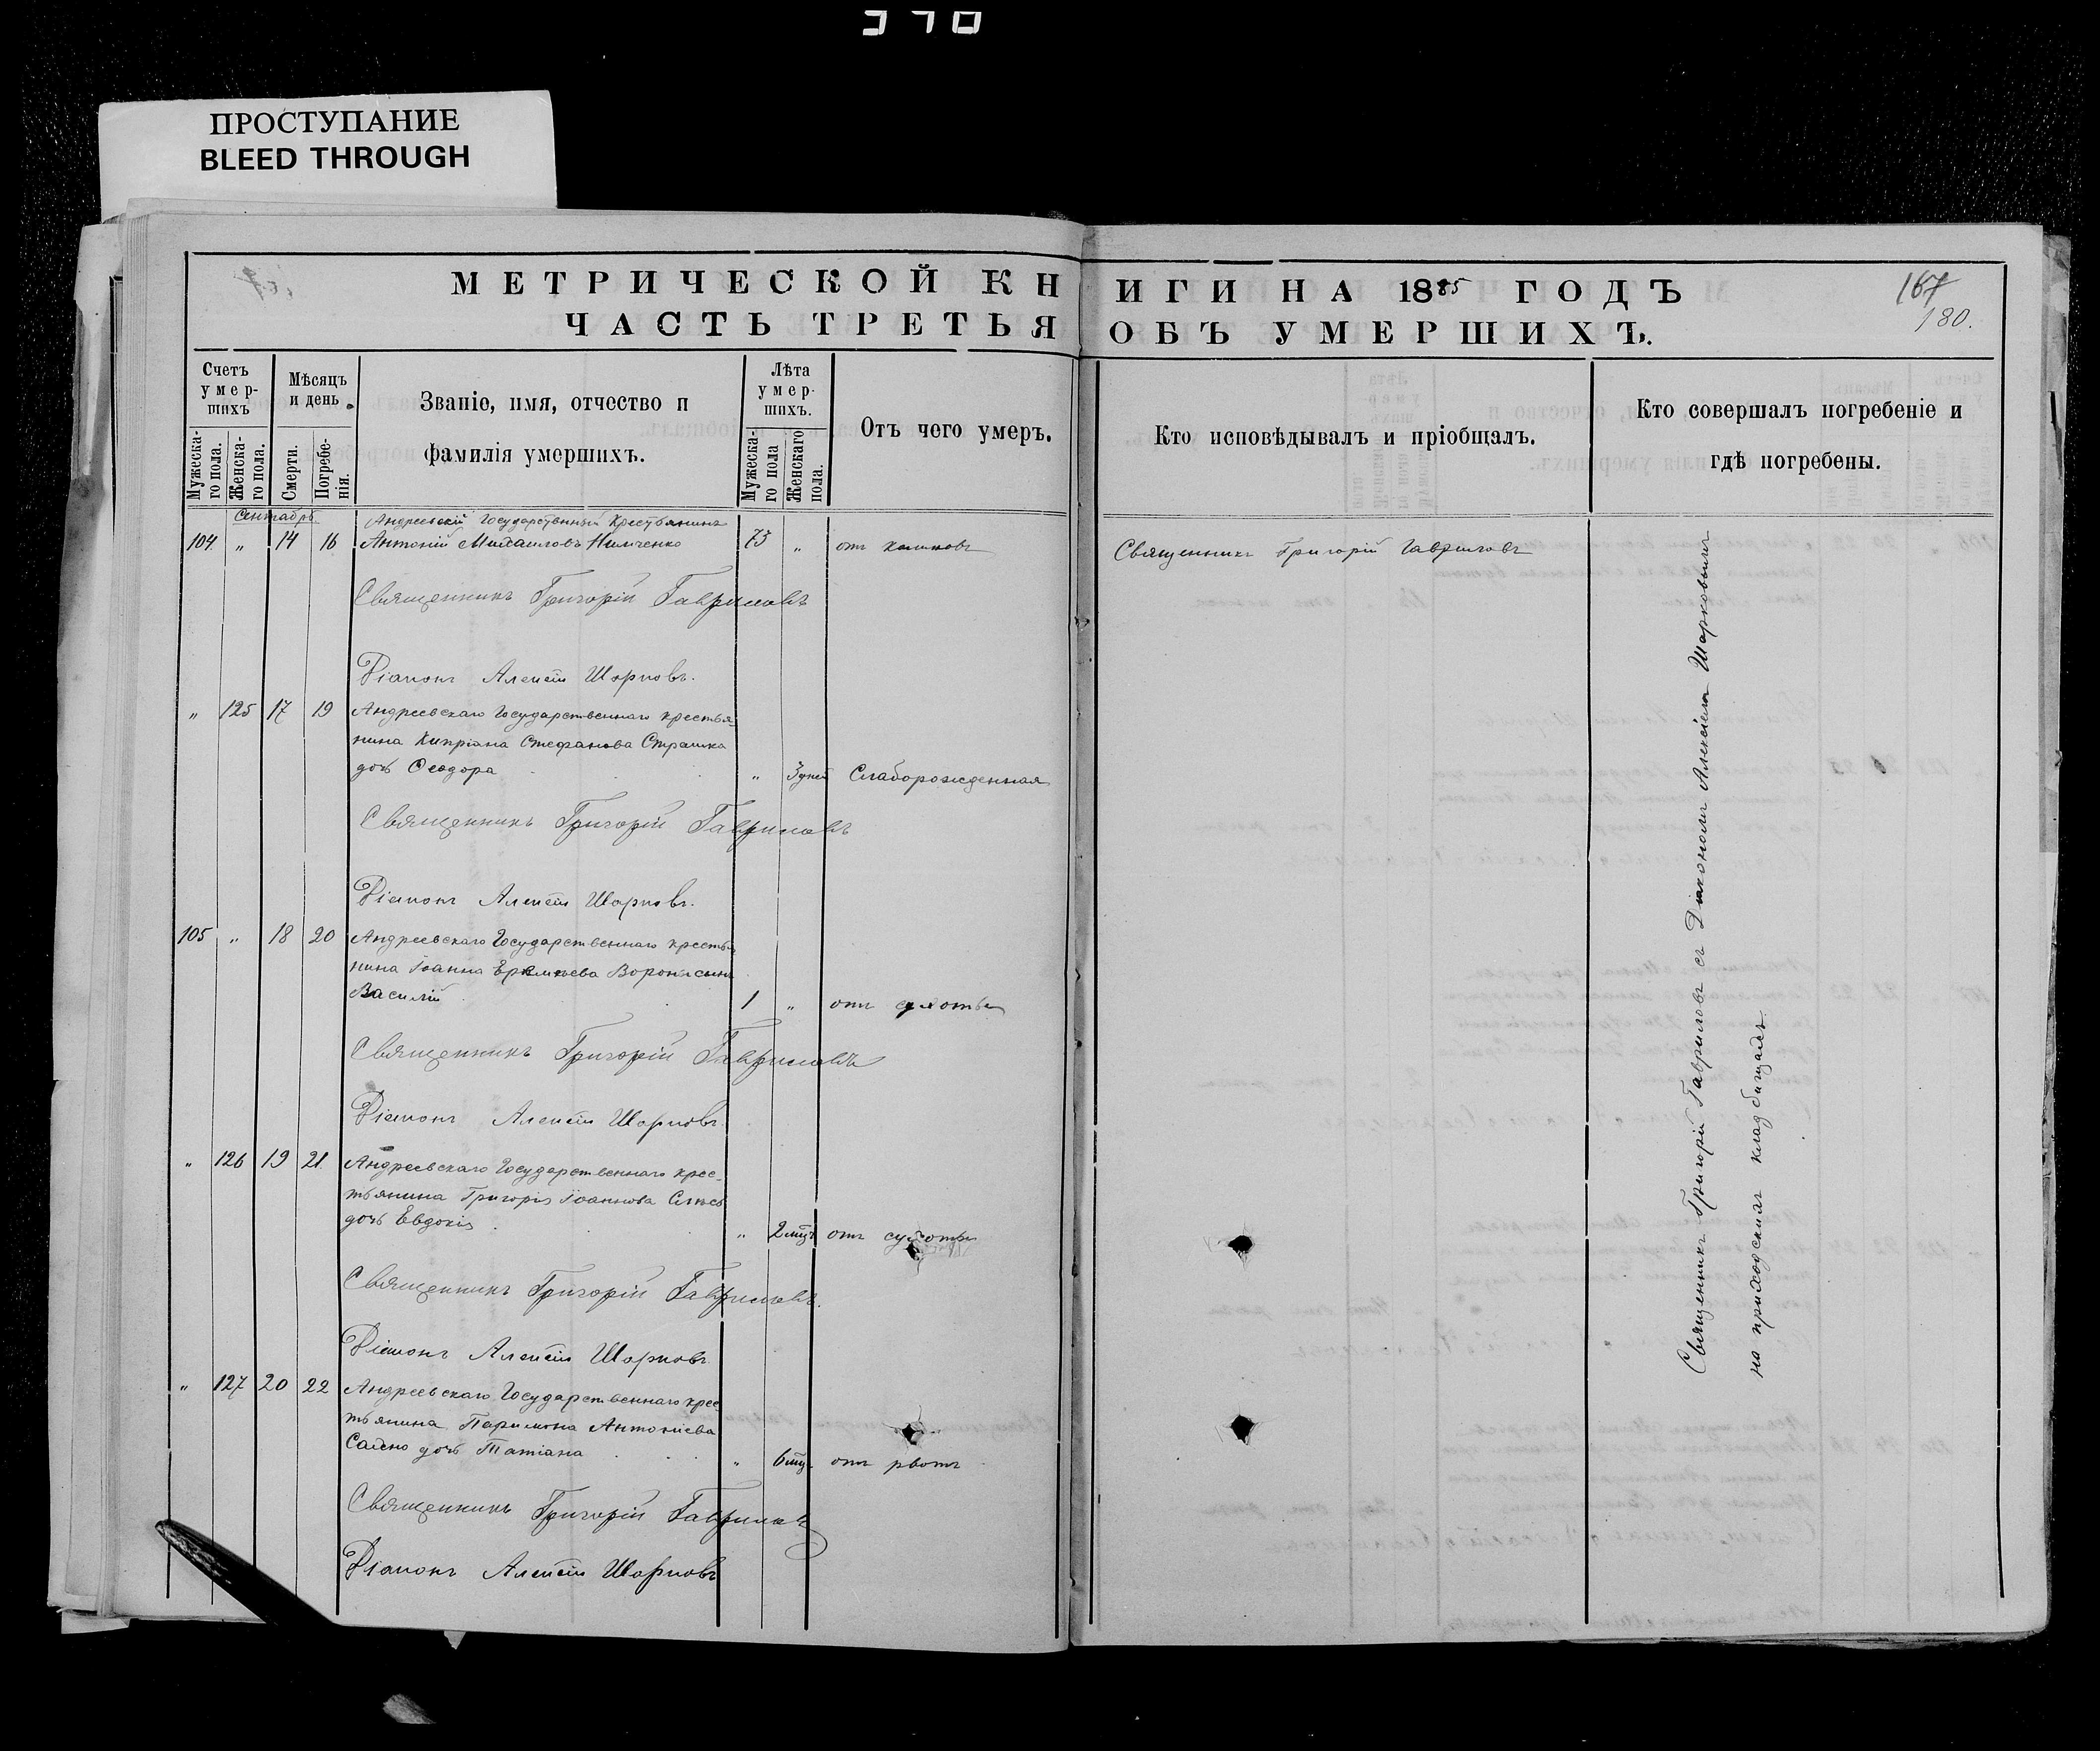 ПРОСТУПАНИЕ
BLEED THROUGH
МЕТРИЧЕСКОЙ КНИГИ НА 1885 ГОДЪ
167
180.
ЧАСТЬ ТРЕТЬЯ ОБЪ УМЕРШИХЪ.
Счетъ умер-шихъ
Мужеска-го пола.
Женска-го пола.
Мѣсяцъ и день.
Смерти.
Погребе-нія.
Званіе, имя, отчество и
фамилія умершихъ.
Лѣта умер-шихъ.
Мужеска-го пола
Женскаго пола.
Отъ чего умеръ.
Кто исповѣдывалъ и пріобщалъ.
Кто совершалъ погребеніе и
гдѣ погребены.
Сентябрь
Андреевскій Государственный Крестьянинъ
104 " 14 16 Антоній Михаиловъ 73 " отъ Священникъ Григорій Гавриловъ
Священникъ Григорій Гавриловъ
Діаконъ Алексій Шарковъ.
" 125 17 19 Андреевскаго Государственнаго крестья-
нина Кипріана Стефанова Страшка
дочь Ѳеодора " 3 дней Слаборожденная
Священникъ Григорій Гавриловъ
Діаконъ Алексій Шарковъ.
105 " 18 20 Андреевскаго Государственнаго крестья-
нина Іоанна сынъ
Василій 1 " отъ сухоты
Священникъ Григорій Гавриловъ
Діаконъ Алексій Шарковъ
" 126 19 21. Андреевскаго Государственнаго крес-
тьянина Григорія Іоаннова
дочь Евдокія " 2 мцъ отъ сухоты
Священникъ Григорій Гавриловъ.
Діаконъ Алексій Шарковъ
" 127 20 22 Андреевскаго Государственнаго крес-
тьянина Парѳмона Антоніева
дочь Татіана " 6 мцъ. отъ рвотъ
Священникъ Григорій Гавриловъ
Діаконъ Алексій Шарковъ
Священникъ Григорій Гавриловъ съ Діакономъ Алексіемъ Шарковымъ
на приходскомъ кладбищѣ.